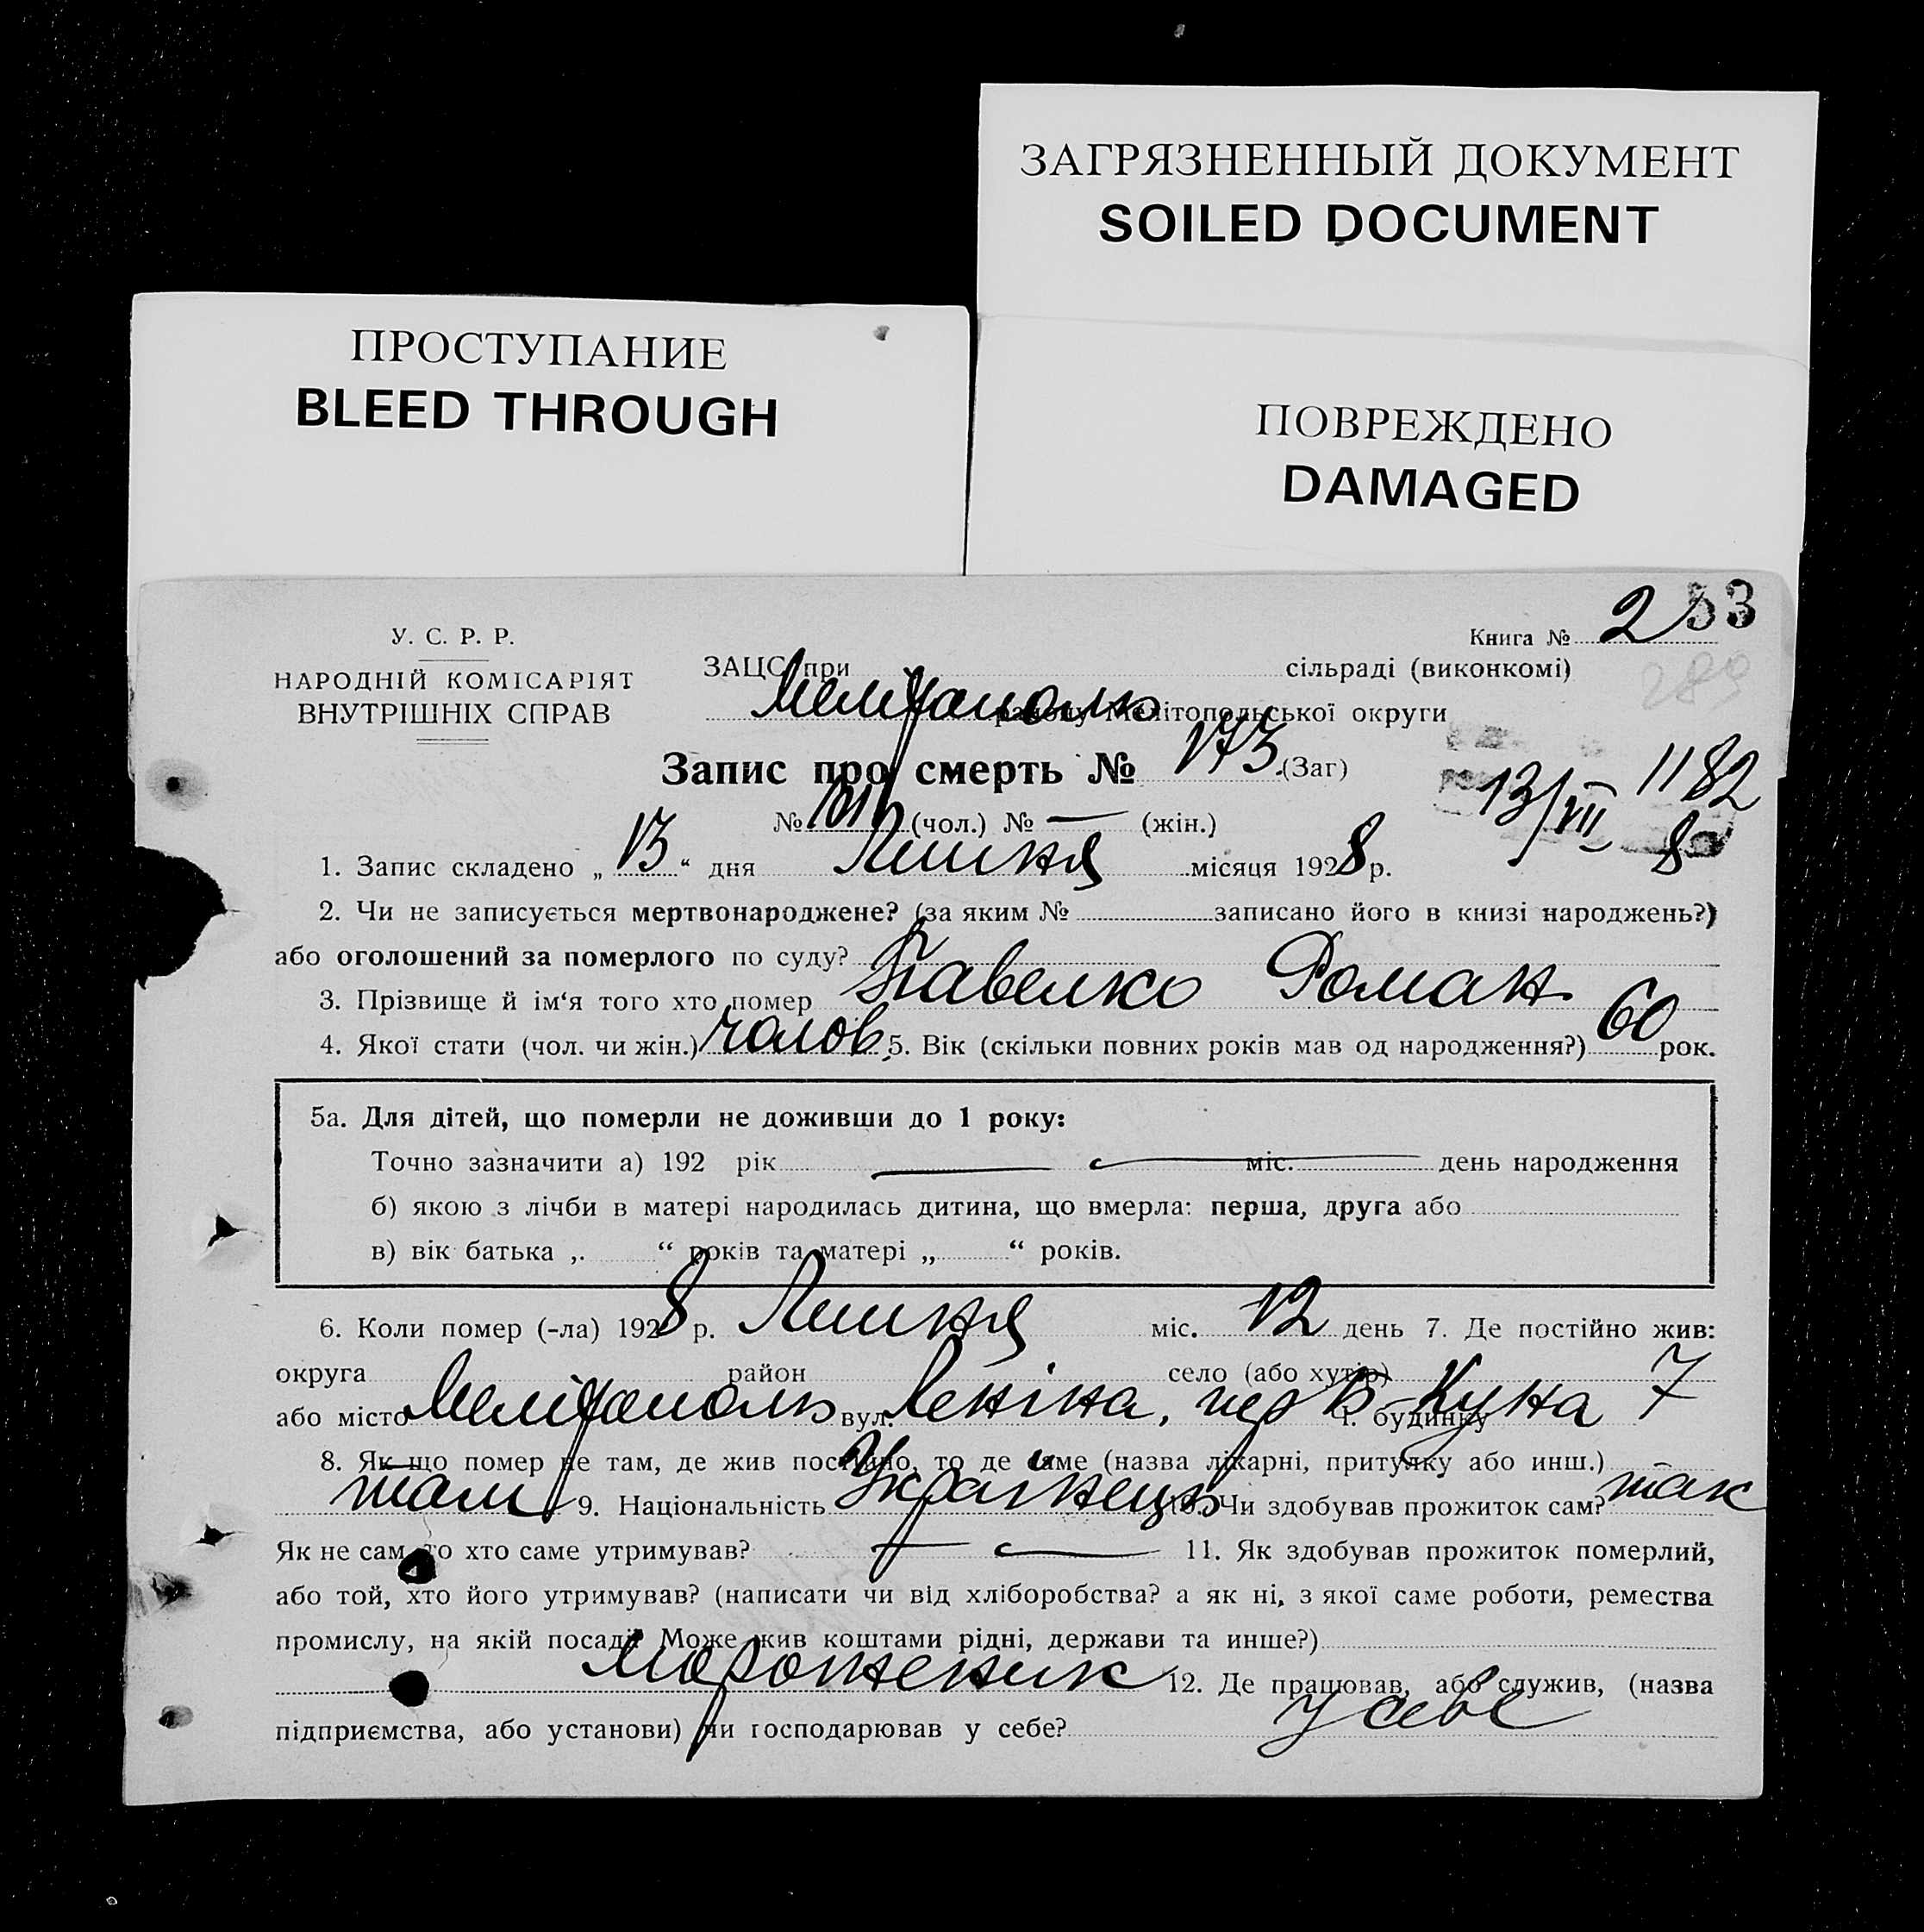 ЗАГРЯЗНЕННЫЙ ДОКУМЕНТ
SOILED DOCUMENT
ПРОСТУПАНИЕ
BLEED THROUGH
ПОВРЕЖДЕНО
DAMAGED
Книга № 2 53
289
У. С. Р. Р.
НАРОДНІЙ КОМІСАРІЯТ
ВНУТРІШНІХ СПРАВ
ЗАЦС при сільраді (виконкомі)
району Мелітопольської округи
Запис про смерть № 173 (Заг)
1182
13/VII 8
№ 101 (чол.) № — (жін.)
1. Запис складено „ 13 “ дня Липня місяця 1928 р.
2. Чи не записується мертвонароджене? (за яким № записано його в книзі народжень?)
або оголошений за померлого по суду?
3. Прізвище й ім‘я того хто помер Павелко Роман
4. Якої стати (чол. чи жін.) чолов. 5. Вік (скільки повних років мав од народження?) 60 рок.
5а. Для дітей, що померли не доживши до 1 року:
Точно зазначити а) 192 рік — міс. — день народження
б) якою з лічби в матері народилась дитина, що вмерла: перша, друга або
в) вік батька „ “ років та матері „ “ років.
6. Коли помер (-ла) 1928 р. Липня міс. 12 день 7. Де постійно жив:
округа район село (або хутір)
або місто Мелітополь вул. Леніна, пер Куна ч. будинку 7
8. Якщо помер не там, де жив постійно, то де саме (назва лікарні, притулку або инш.)
там 9. Національність Українець 10. Чи здобував прожиток сам? так
Як не сам, то хто саме утримував? — — 11. Як здобував прожиток померлий,
або той, хто його утримував? (написати чи від хліборобства? а як ні, з якої саме роботи, ремества
промислу, на якій посаді? Може жив коштами рідні, держави та инше?)
Мороженик 12. Де працював, або служив, (назва
підприємства, або установи) чи господарював у себе? У себе